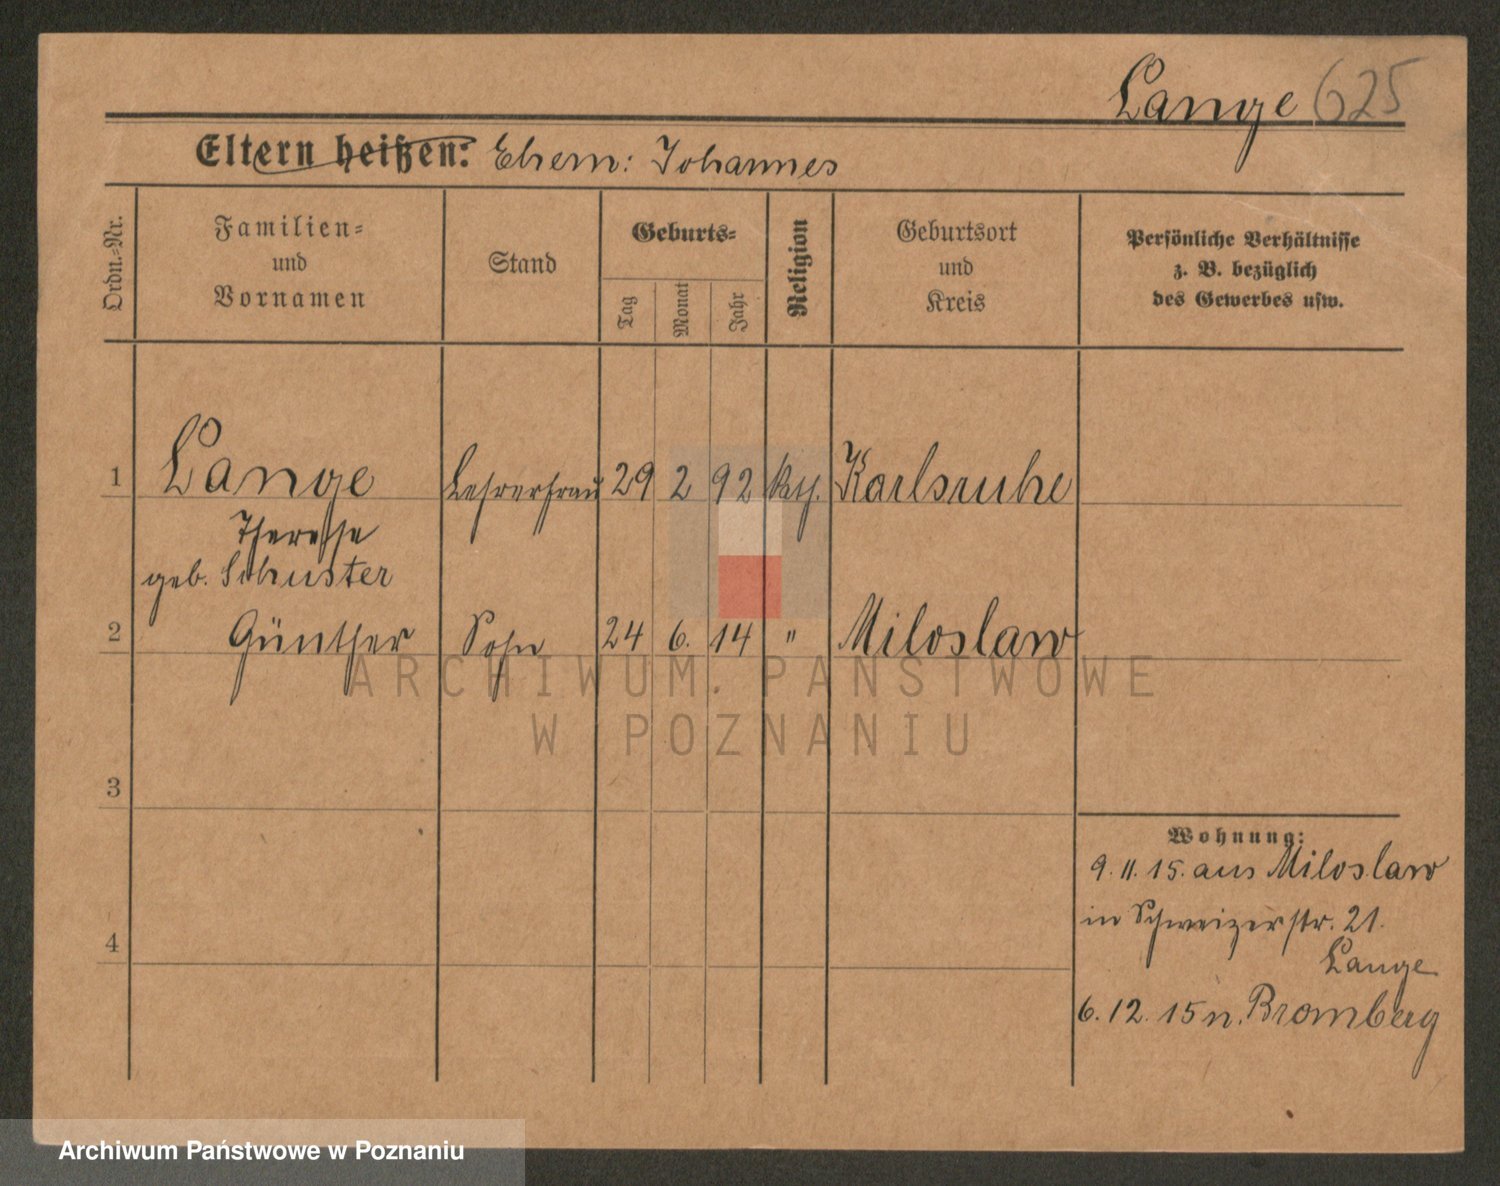 Lange 625
Eltern heißen: Ehem: Johannes
Ordn.=Nr.
Familien=
und
Vornamen
Stand
Geburts=
Tag
Monat
Jahr
Religion
Geburtsort
und
Kreis
Persönliche Verhältnisse
z. B. bezüglich
des Gewerbes usw.
1 Lange Lehrerfrau 29 2 92 kath. Karlsruhe
Therese
geb. Schuster
2 Günther Sohn 24 6. 14 " Miloslaw
ARCHIWUM PAŃSTWOWE
W POZNANIU
3
4
Wohnung:
9. 11. 15. aus Miloslaw
in Schweizerstr. 21.
Lange
6. 12. 15 n. Bromberg
Archiwum Państwowe w Poznaniu